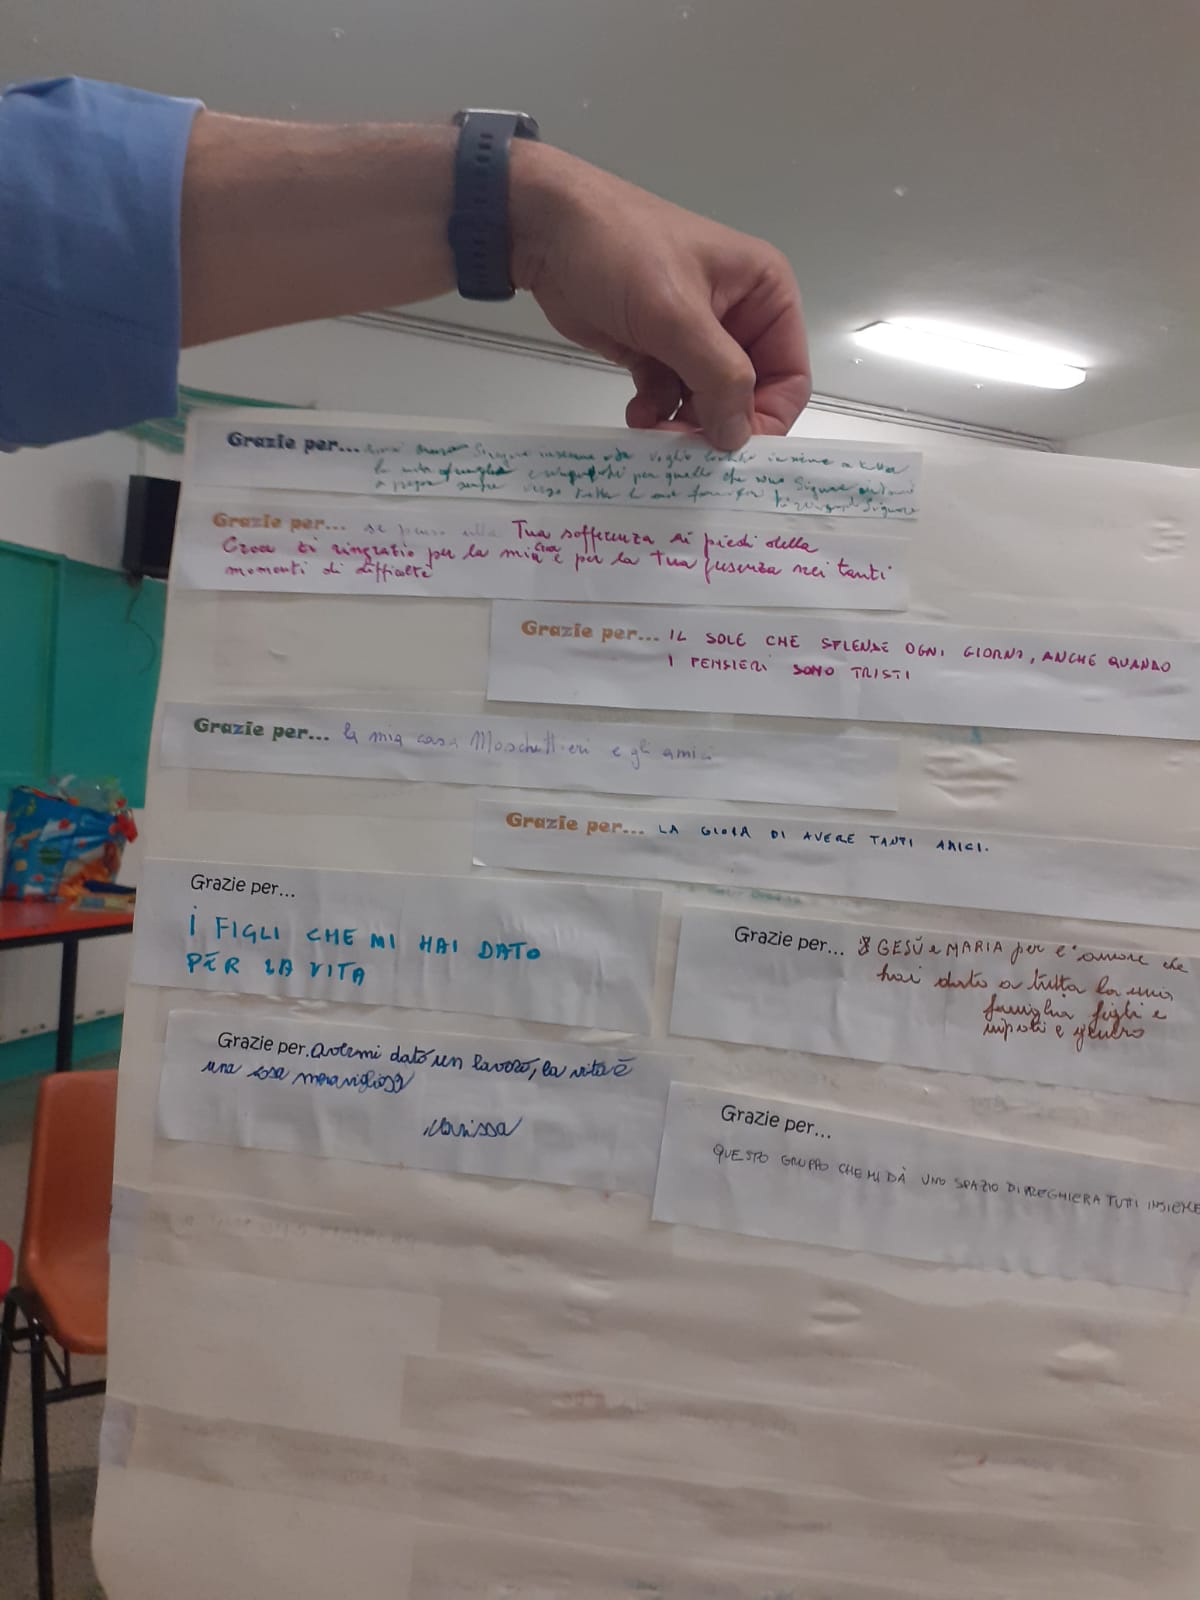 Grazie per... Signore insieme voglio insieme a
la mia famiglia e per quello che Signore
a sempre verso tutta la mia Signore
Grazie per... se penso alla Tua sofferenza ai piedi della
Croce ti ringrazio per la mia croce e per la Tua presenza nei tanti
momenti di difficoltà
Grazie per... IL SOLE CHE SPLENDE OGNI GIORNO, ANCHE QUANDO
I PENSIERI SONO TRISTI
Grazie per... la mia casa Moschettieri e gli amici
Grazie per... LA GIOIA DI AVERE TANTI AMICI.
Grazie per...
I FIGLI CHE MI HAI DATO
PER LA VITA
Grazie per... GESÙ e MARIA per l'amore che
hai dato a tutta la mia
famiglia figli e
nipoti e genero
Grazie per. avermi dato un lavoro, la vita è
una cosa meravigliosa
Marissa
Grazie per...
QUESTO GRUPPO CHE MI DÀ UNO SPAZIO DI PREGHIERA TUTTI INSIEME